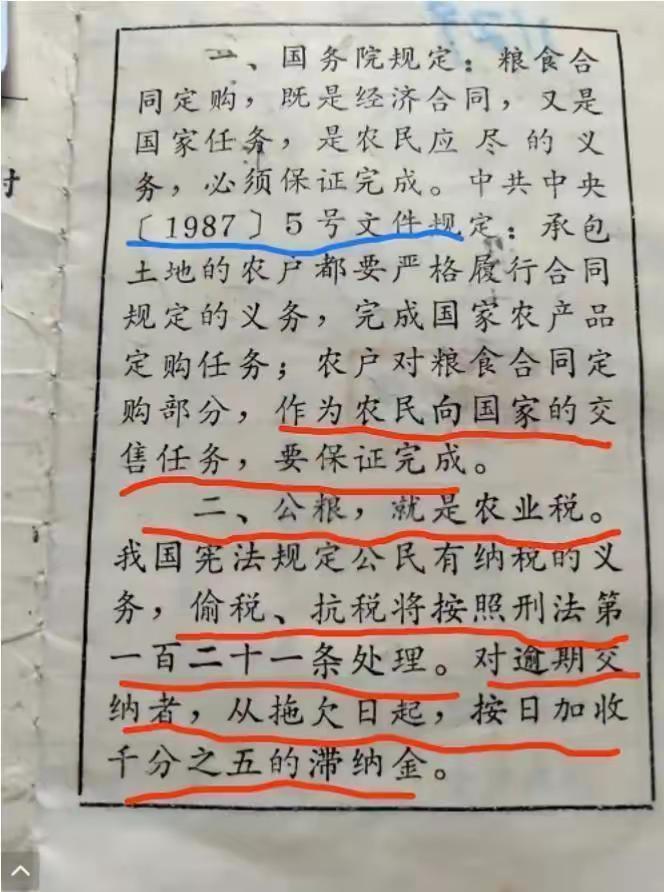 一、国务院规定：粮食合
同定购，既是经济合同，又是
国家任务，是农民应尽的义
务，必须保证完成。中共中央
〔1987〕5号文件规定：承包
土地的农户都要严格履行合同
规定的义务，完成国家农产品
定购任务；农户对粮食合同定
购部分，作为农民向国家的交
售任务，要保证完成。
二、公粮，就是农业税。
我国宪法规定公民有纳税的义
务，偷税、抗税将按照刑法第
一百二十一条处理。对逾期交
纳者，从拖欠日起，按日加收
千分之五的滞纳金。